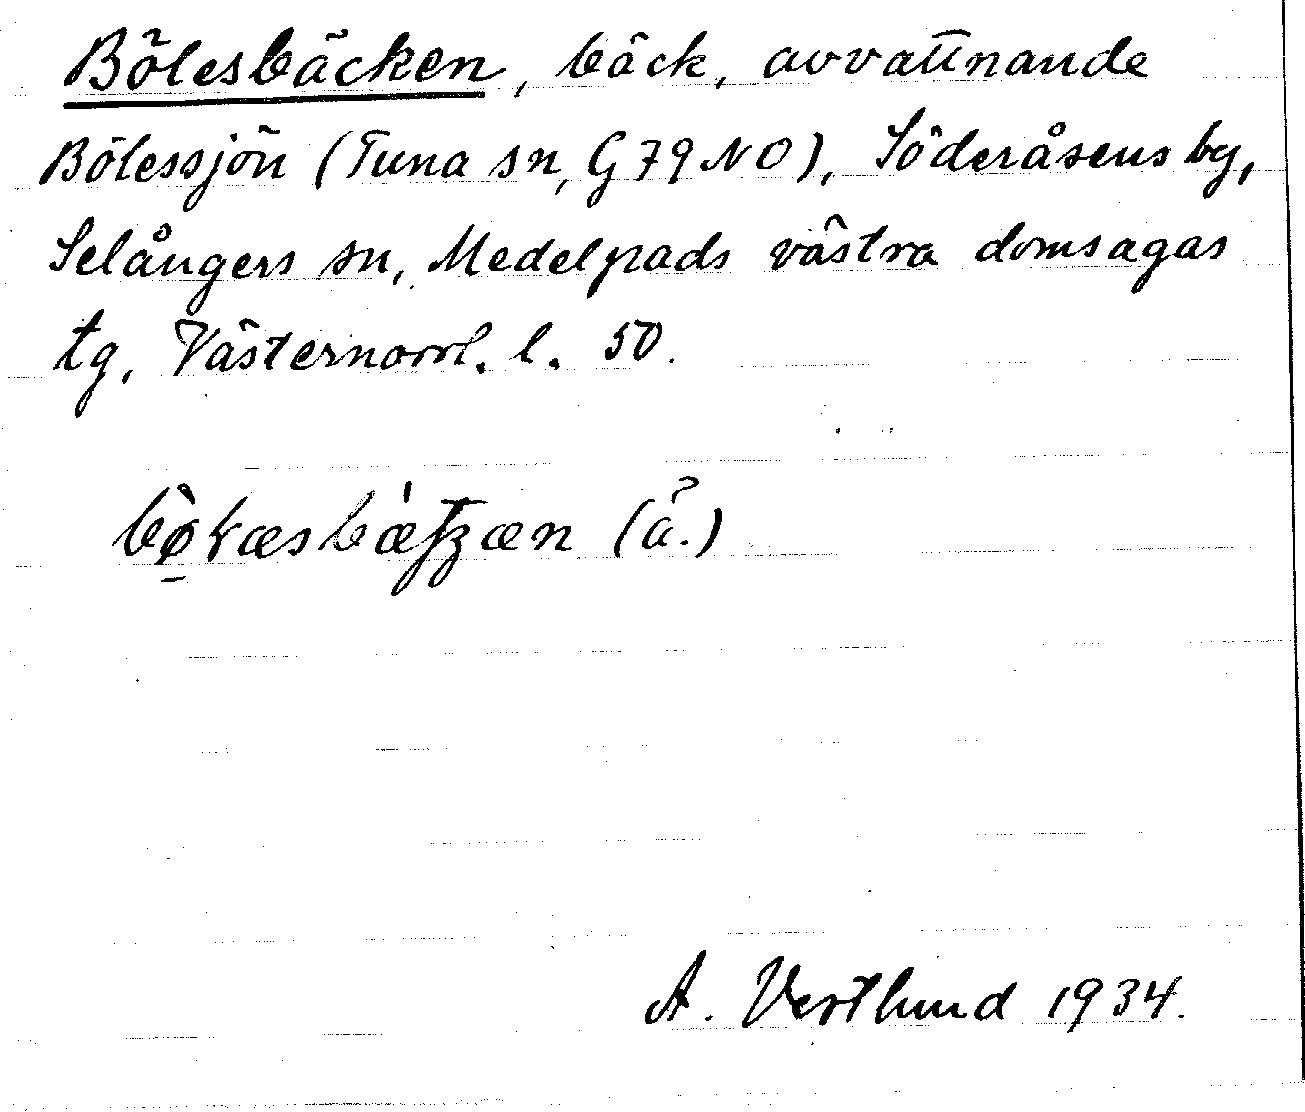 Bölesbäcken, bäck, avvattnande
Bölessjön (Tuna sn, G 79 NO), Söderåsens by,
Selångers sn, Medelpads västra domsagas
tg, Västernorrl. l. 50.
(ä.)
A. Vestlund 1934.